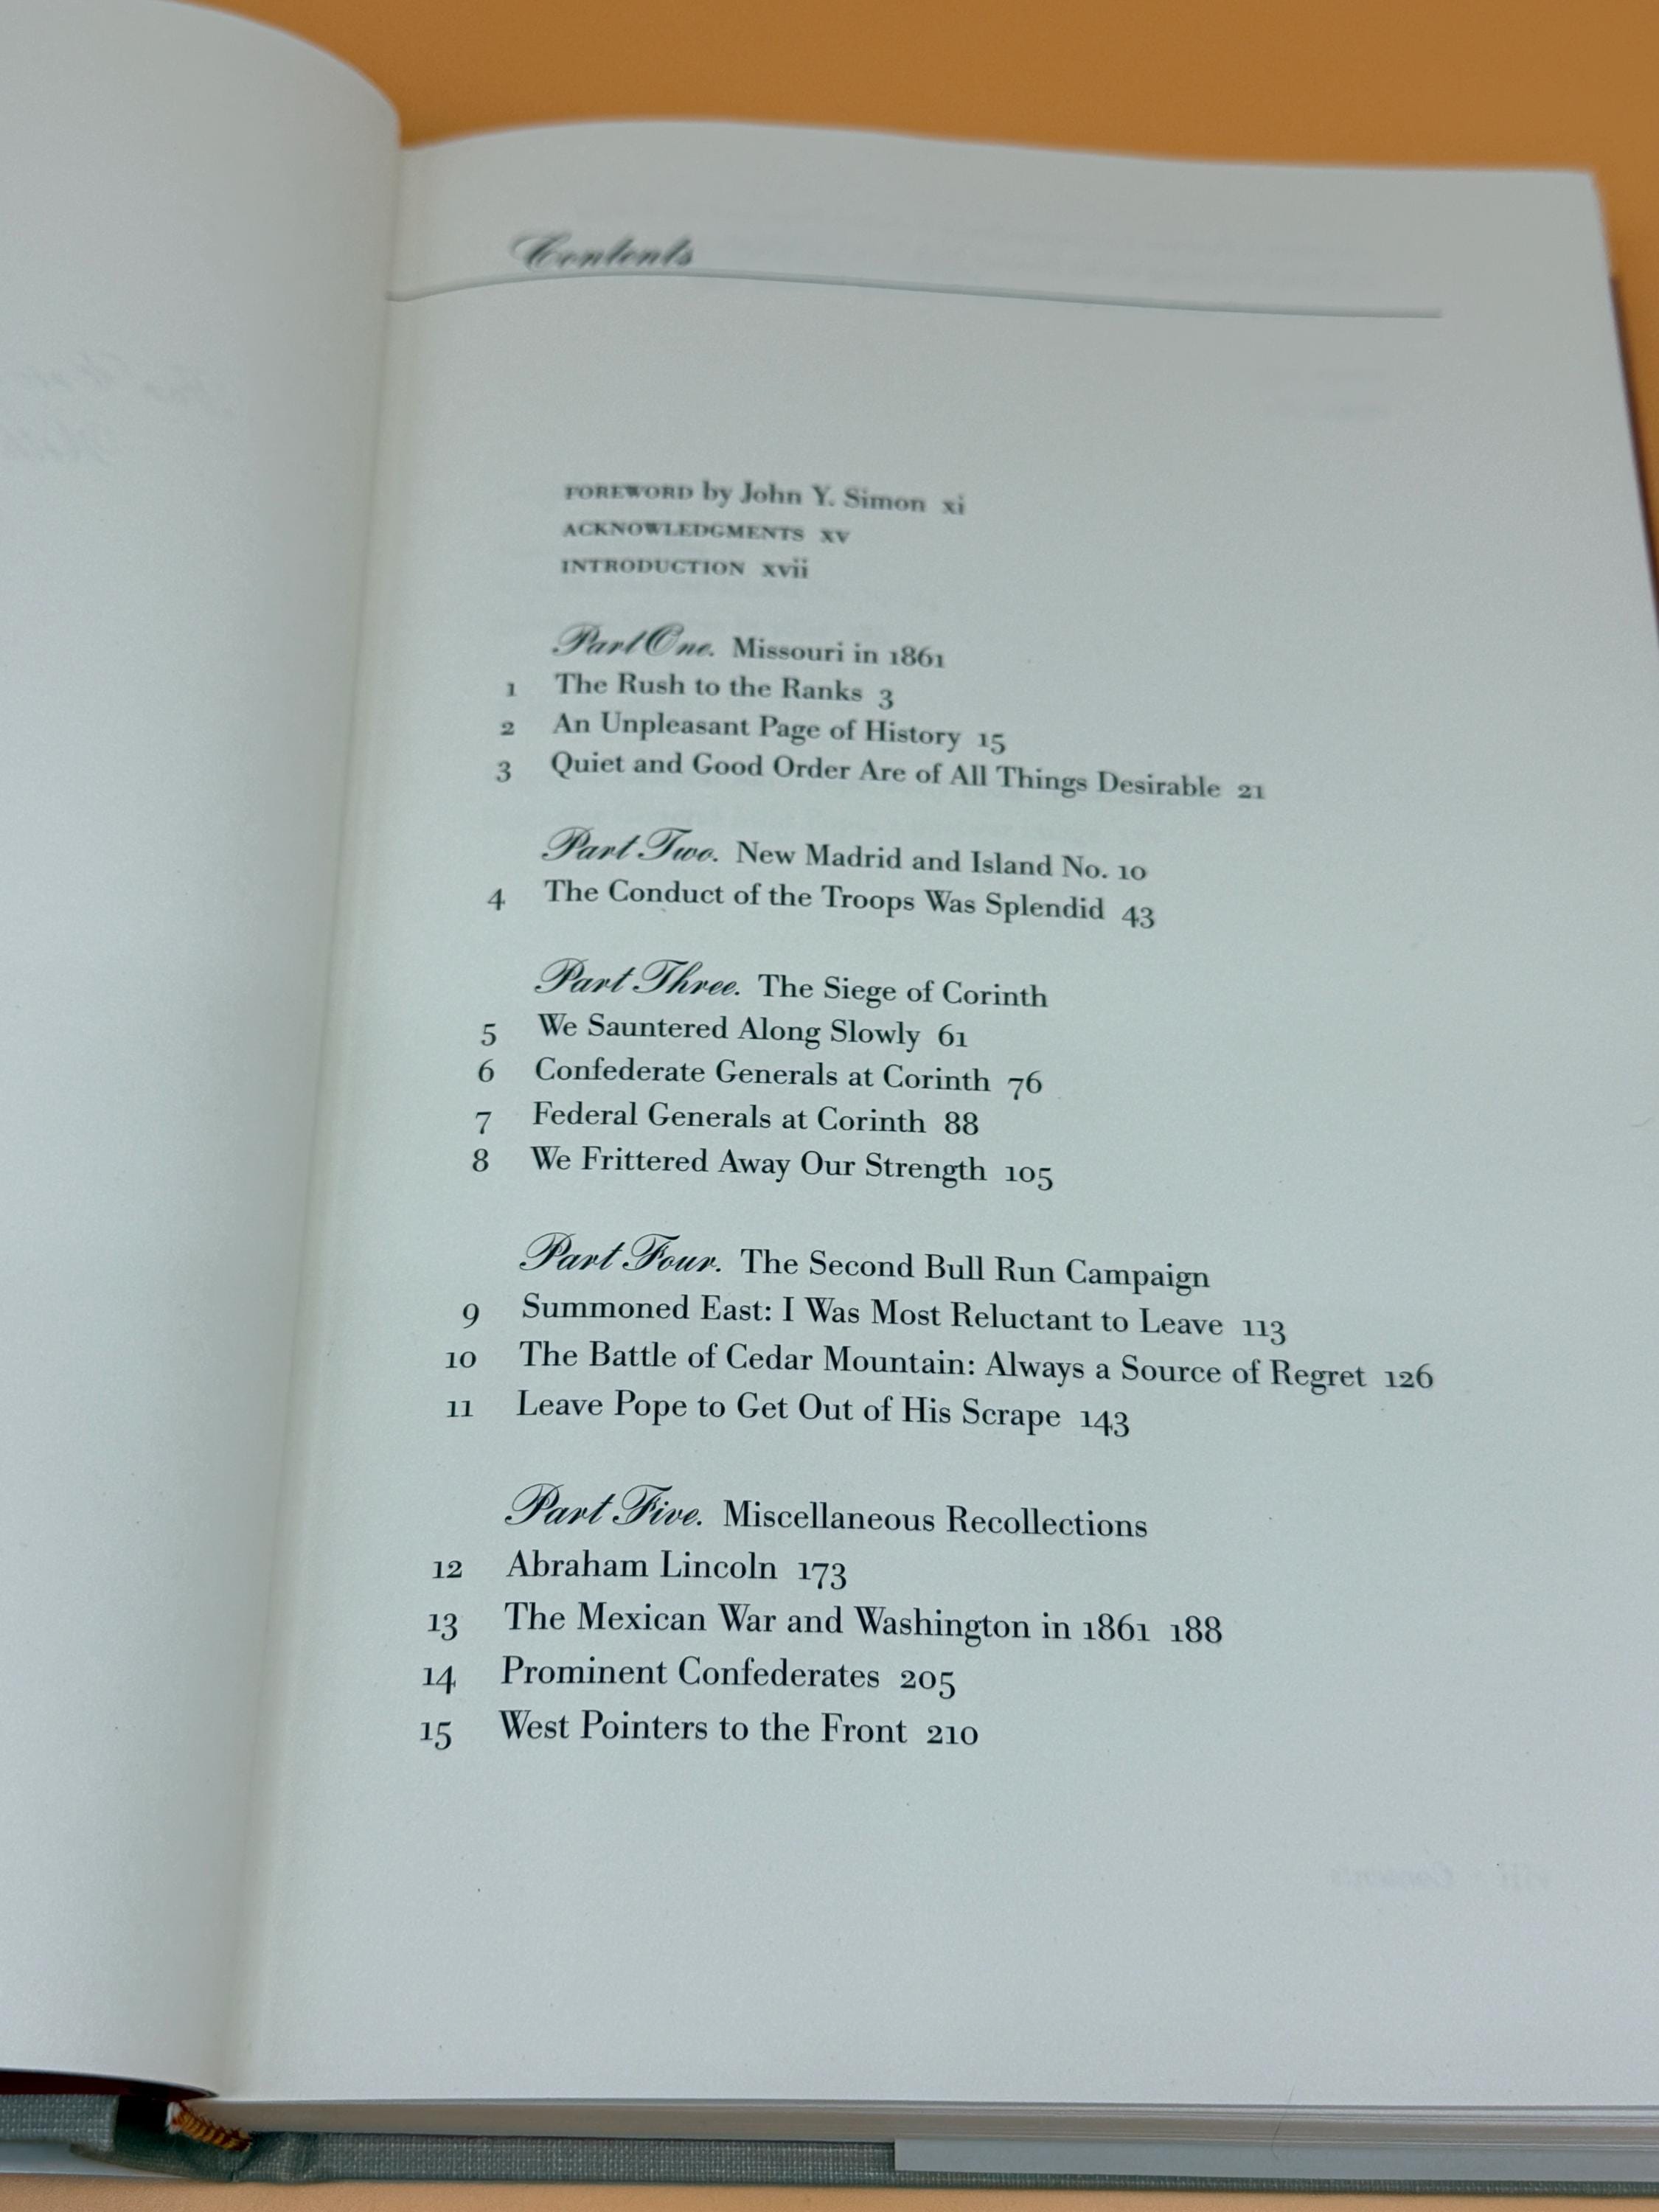 Contents
FOREWORD by John Y. Simon xi
ACKNOWLEDGMENTS xv
INTRODUCTION xvii
Part One. Missouri in 1861
1 The Rush to the Ranks 3
2 An Unpleasant Page of History 15
3 Quiet and Good Order Are of All Things Desirable 21
Part Two. New Madrid and Island No. 10
4 The Conduct of the Troops Was Splendid 43
Part Three. The Siege of Corinth
5 We Sauntered Along Slowly 61
6 Confederate Generals at Corinth 76
7 Federal Generals at Corinth 88
8 We Frittered Away Our Strength 105
Part Four. The Second Bull Run Campaign
9 Summoned East: I Was Most Reluctant to Leave 113
10 The Battle of Cedar Mountain: Always a Source of Regret 126
11 Leave Pope to Get Out of His Scrape 143
Part Five. Miscellaneous Recollections
12 Abraham Lincoln 173
13 The Mexican War and Washington in 1861 188
14 Prominent Confederates 205
15 West Pointers to the Front 210